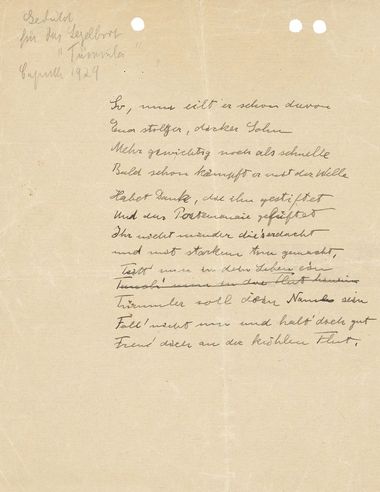 Gedicht
für das Segelboot
"Tümmler"
Caputh 1929
So, nun eilt er schon davon
Euer stolzer, dicker Sohn
Mehr gewichtig noch als schnelle
Bald schon kämpft er mit der Welle
Habet Dank, die ihn gestiftet
Und das Portemonaie gelüftet
Ihr nicht minder die's erdacht
und mit starkem gemacht,
Tritt nun in dein Leben ein
in die Flut hinein
Tümmler soll dein Name sein
Fall' nicht um und halt' dich gut
Freu' dich an der kühlen Flut.